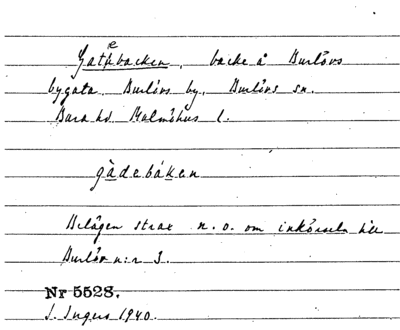 Gatebacken, backe å Burlövs
bygata Burlövs by, Burlövs sn.
Bara hd Malmöhus l.
gàdebáken
Belägen strax n.o. om inkörseln till
Burlöv n:r 3.
Nr 5528.
I. Ingers 1940.